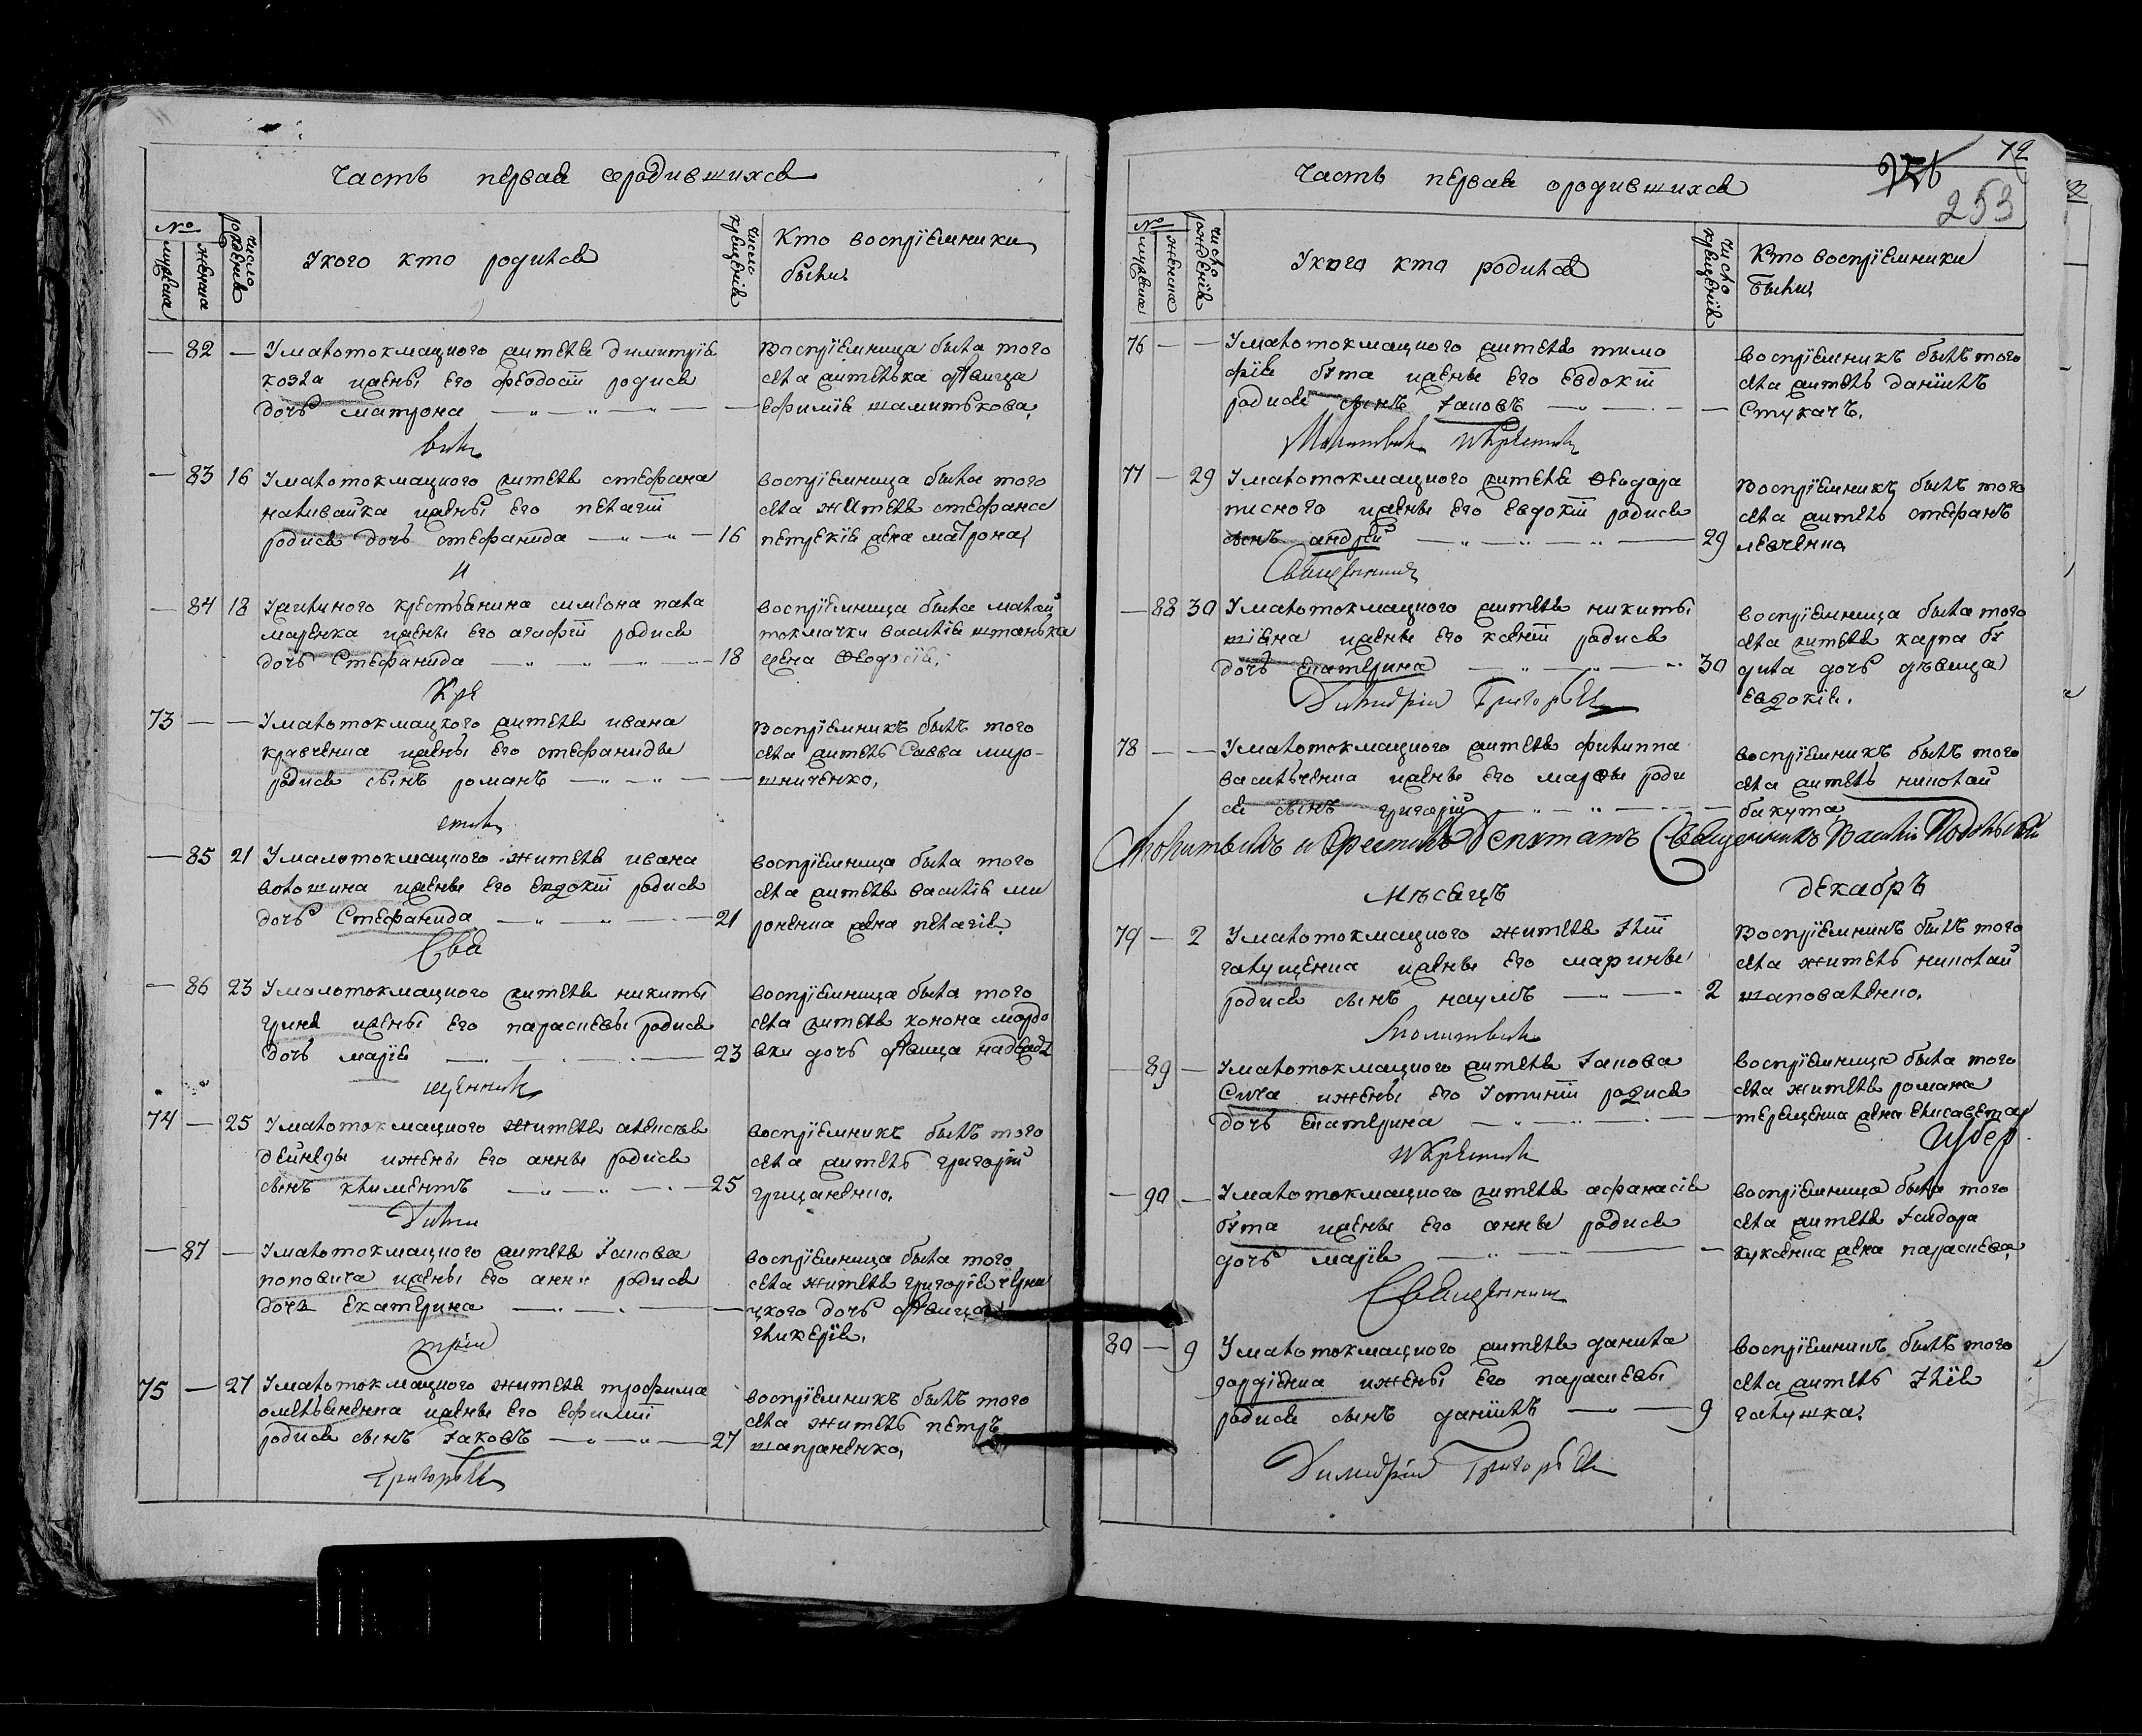 Часть первая о родившихся
№
мужеска
женска
число рождения
У кого кто родился
число крещенія
Кто воспріемники
были
— 82 — У малотокмацкого жителя димитрія
козла и жены его феодосіи родися
дочь матрона
воспріемница была того
села жителька дѣвица
ефимія шамитькова
— 83 16 У малотокмацкого жителя стефана
наливайка и жены его пелагіи
родися дочь стефанида 16
воспріемница была того
села жителя стефана
петрекія жена матрона
и
— 84 18 крестьянина симеона пала
маренка и жены его агафіи родися
дочь Стефанида 18
воспріемница была малой
токмачки василія штанька
жена Ѳеодосія
Кре
73 — — У малотокмацкого жителя ивана
кравченка и жены его стефаниды
родися сынъ романъ
воспріемникъ былъ того
села житель Савва миро-
шниченко
стилъ
— 85 21 У малотокмацкого жителя ивана
волошина и жены его евдокіи родися
дочь Стефанида 21
воспріемница была того
села жителя василія ми
роненка жена пелагія
Свя
— 86 23 У малотокмацкого жителя никиты
грина и жены его параскевы родися
дочь марія 23
воспріемница была того
села жителя конона мордо
вки дочь дѣвица
щенникъ
74 — 25 У малотокмацкого жителя алексѣя
дейнеды и жены его анны родися
сынъ климентъ 25
воспріемникъ былъ того
села житель григорій
грицаненко
Дими
— 87 — У малотокмацкого жителя Іакова
поповича и жены его анны родися
дочь Екатерина
воспріемница была того
села жителя григорія черни
цкого дочь дѣвица
гликерія
трій
75 — 27 У малотокмацкого жителя трофима
омельяненка и жены его Ефиміи
родися сынъ Іаковъ 27
воспріемникъ былъ того
села житель петръ
шапраненко
Григорьевъ
72
253
Часть первая о родившихся
№
мужеска
женска
число рожденія
У кого кто родился
число крещенія
Кто воспріемники
были
76 — — У малотокмацкого жителя тимо
фія бута и жены его Евдокіи
родися сынъ Іаковъ
воспріемникъ былъ того
села житель даніилъ
Стукачъ
Молитвилъ и Крестилъ
77 — 29 У малотокмацкого жителя Ѳеодора
писного и жены его Евдокіи родися
сынъ андрей 29
воспріемникъ былъ того
села житель стефанъ
левченко
Священникъ
— 88 30 У малотокмацкого жителя никиты
шіяна и жены его ксеніи родися
дочь екатерина 30
воспріемница была того
села жителя карпа бу
дила дочь дѣвица
Евдокія
Димитрій Григорьевъ
78 — — У малотокмацкого жителя филиппа
васильченка и жены его марѳы роди
ся сынъ григорій
воспріемникъ былъ того
села житель николай
бакута
молитвилъ и Крестилъ Депутатъ Священникъ Василій
мѣсяцъ декабръ
79 — 2 У малотокмацкого жителя Іліи
галущенка и жены его марины
родися сынъ наумъ 2
воспріемникъ былъ того
села житель николай
шаповаленко
Молитвилъ
— 89 — У малотокмацкого жителя Іакова
Сича и жены его Іустиніи родися
дочь екатерина
воспріемница была того
села жителя романа
терещенка жена елисавета
и Крестилъ
— 90 — У малотокмацкого жителя афанасія
бута и жены его анны родися
дочь марія
воспріемница была того
села жителя Ісидора
жена параскева
Священникъ
80 — 9 У малотокмацкого жителя данила
гордіенка и жены его параскевы
родися сынъ даніилъ 9
воспріемникъ былъ того
села житель Ілія
галушка
Димитрій Григорьевъ